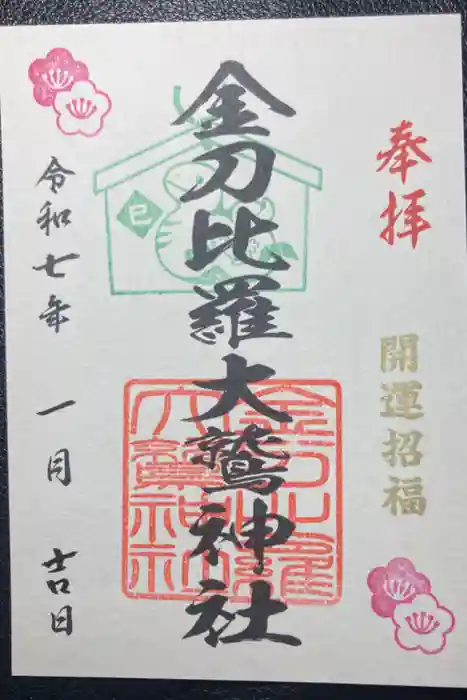 奉拝
開運招福
金刀比羅大鷲神社
巳
金刀比羅
大鷲神社
令和七年 一月 吉日